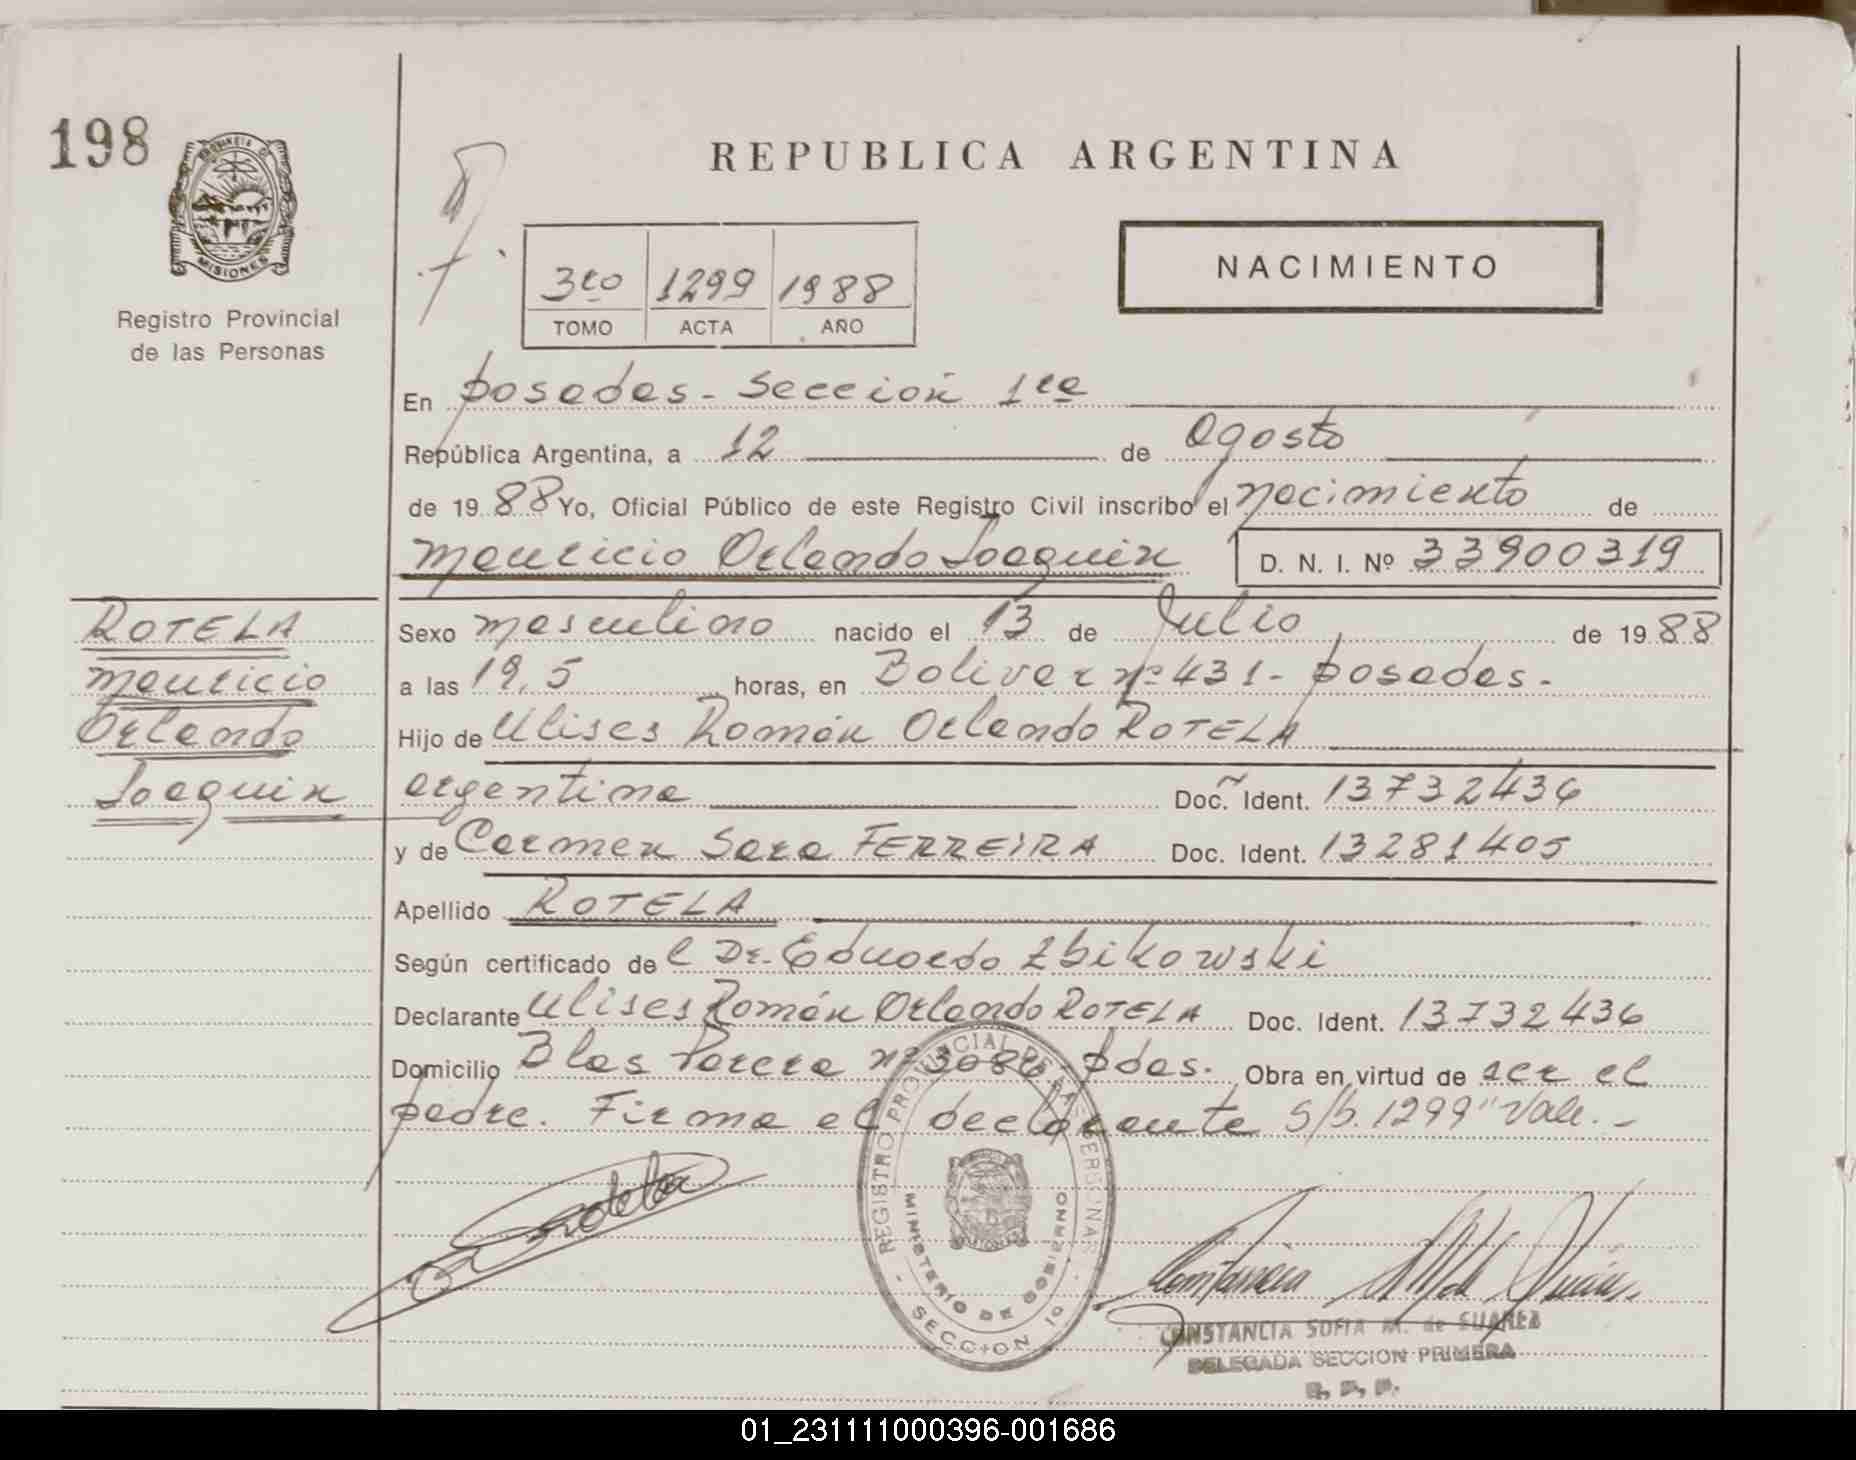 198
PROVINCIA DE
MISIONES
Registro Provincial
de las Personas
REPUBLICA ARGENTINA
NACIMIENTO
3ro 1299 1988
TOMO ACTA AÑO
En posadas - Sección 1ra
República Argentina, a 12 de Agosto
de 19 88 Yo, Oficial Público de este Registro Civil inscribo el nacimiento de
Mauricio Orlando Joaquin D. N. I. Nº 33900319
ROTELA
Mauricio
Orlando
Joaquin
Sexo masculino nacido el 13 de Julio de 19 88
a las 19,5 horas, en Bolivar nº 431 - posadas -
Hijo de Ulises Román Orlando ROTELA
argentina Doc. Ident. 13732436
y de Carmen Sara FERREIRA Doc. Ident. 13281405
Apellido ROTELA
Según certificado de l Dr. Eduardo Zbikowski
Declarante Ulises Román Orlando ROTELA Doc. Ident. 13732436
Domicilio Blas Parera nº 3086 pdas. Obra en virtud de ser el
padre. Firma el declarante S/b. 1299 "Vale. -
REGISTRO PROVINCIAL DE LAS PERSONAS
MINISTERIO DE GOBIERNO
SECCION 1º
CONSTANCIA SOFIA M. de SUAREZ
DELEGADA SECCION PRIMERA
R. P. P.
01_231111000396-001686